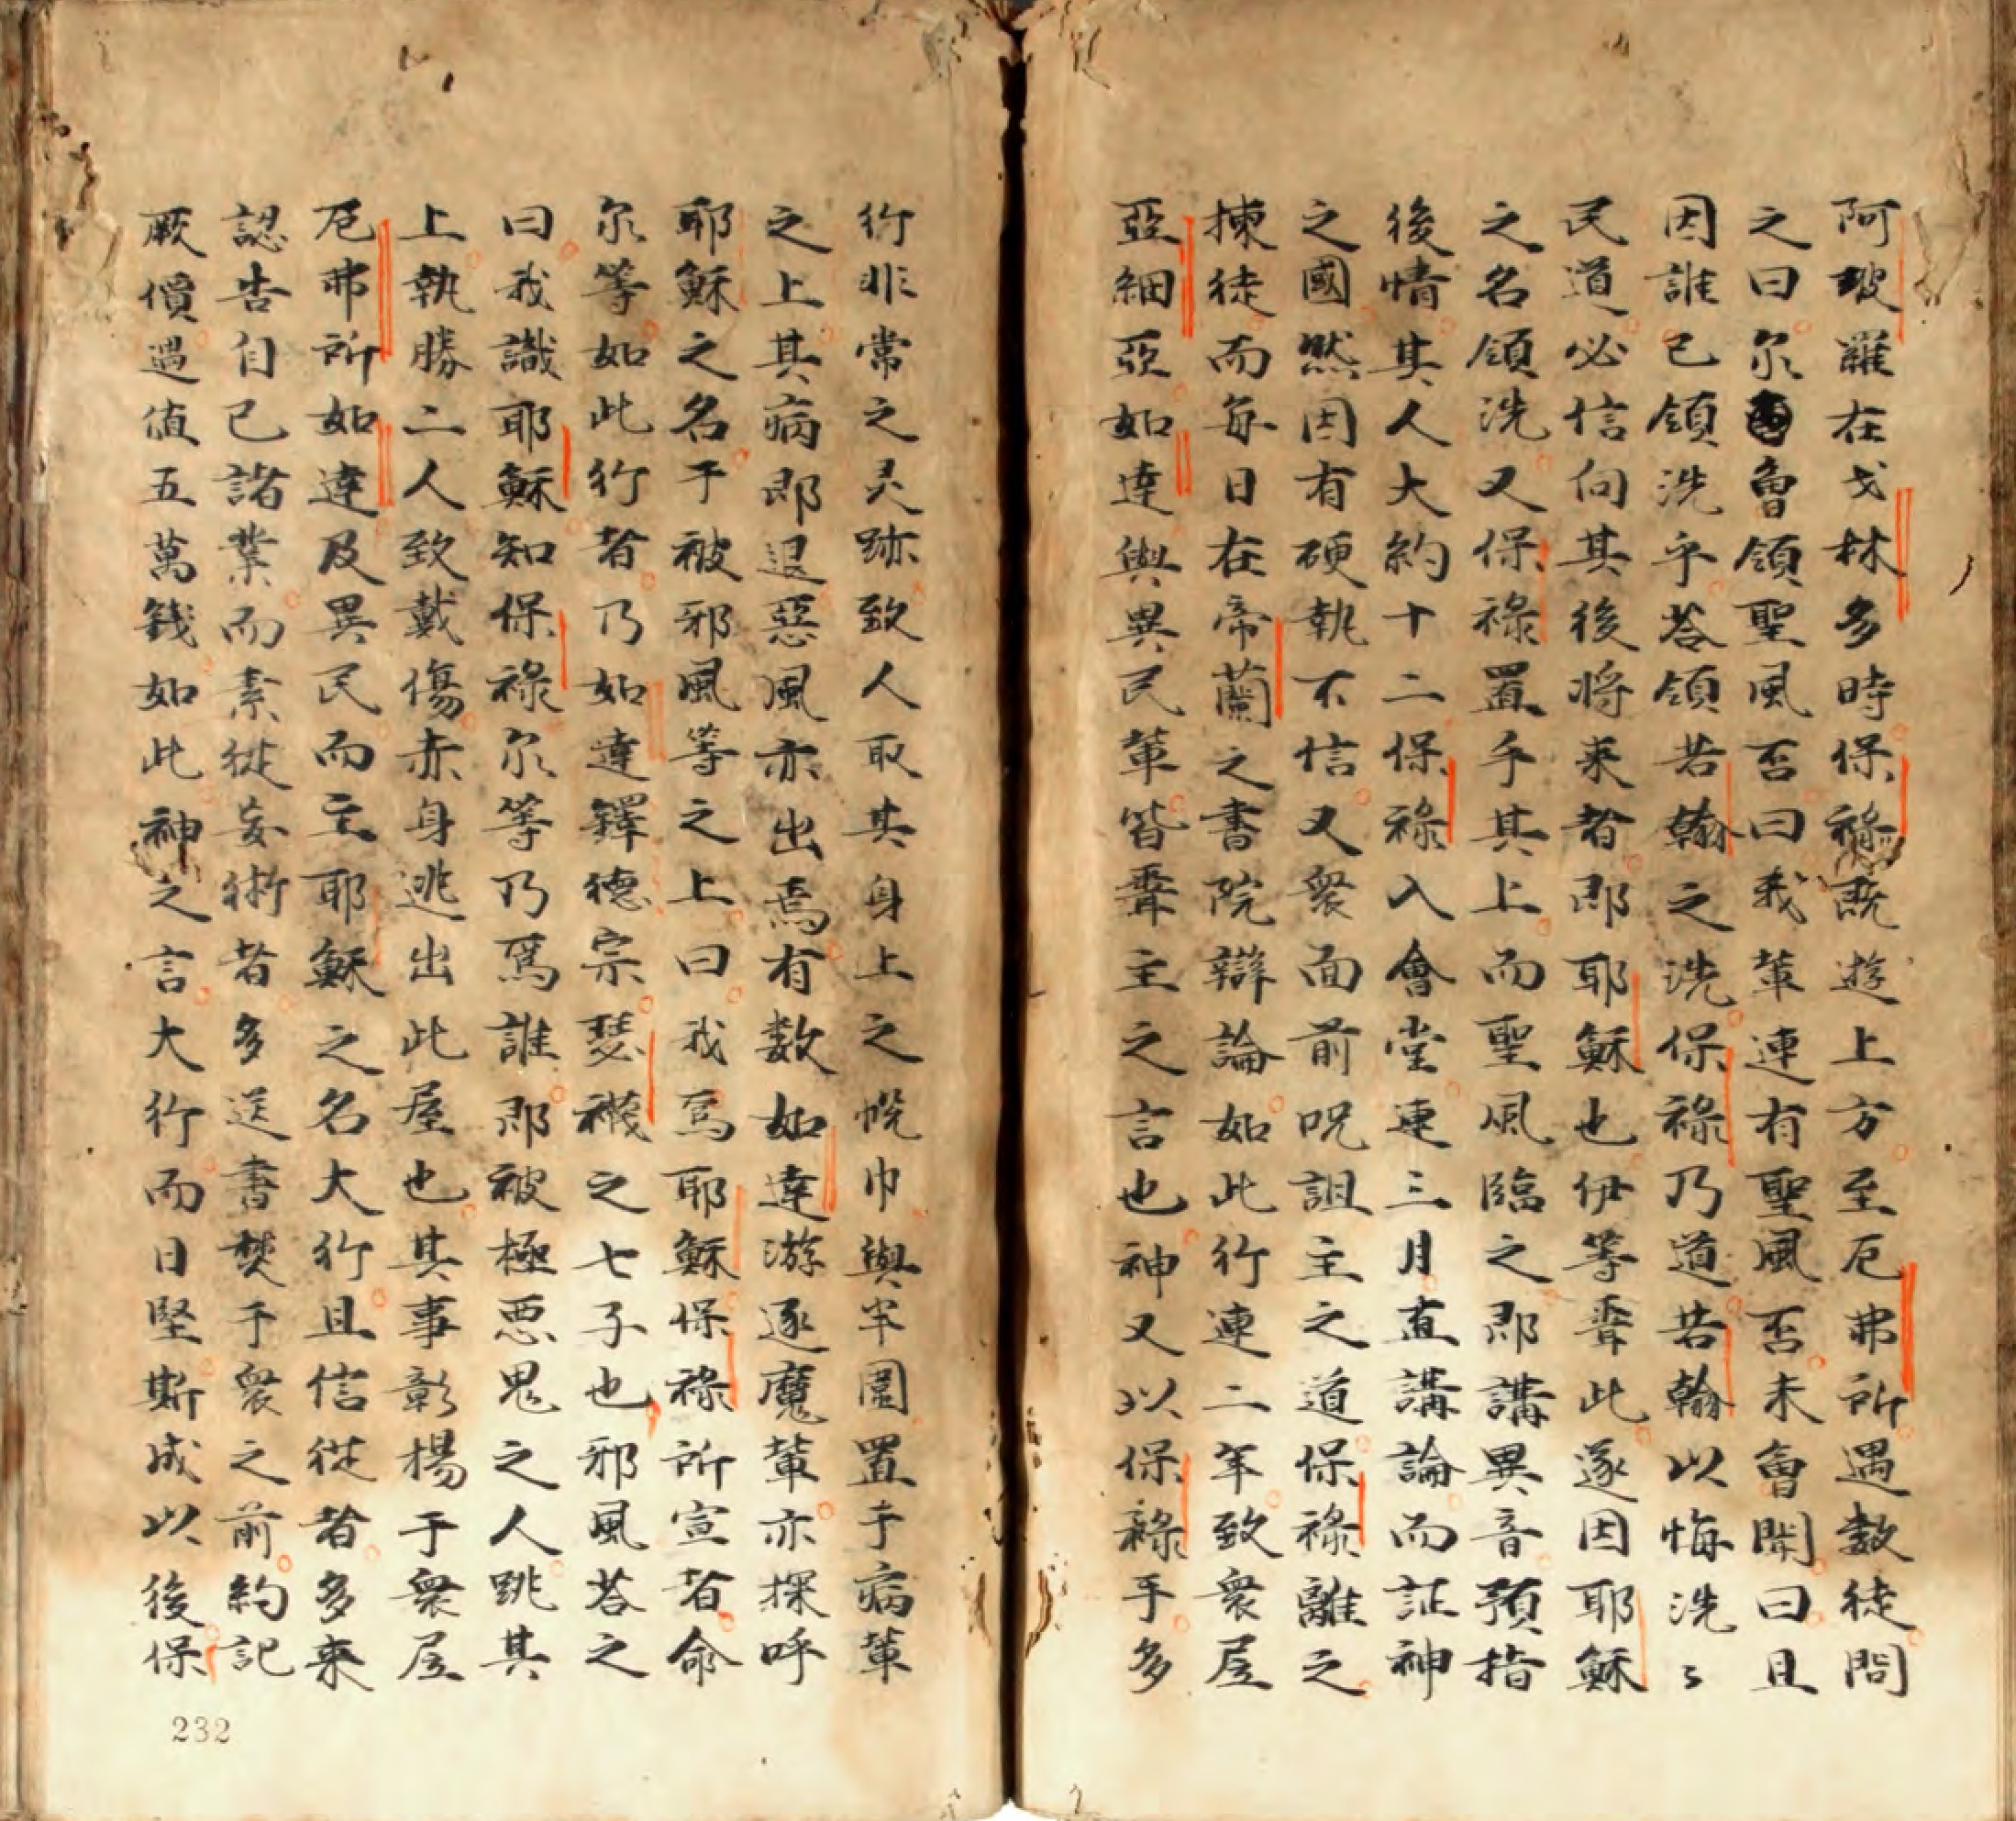 阿玻羅在戈林多時保祿既遊上方至厄弗所遇數徒問
之曰尔曾領聖風否曰我輩連有聖風否未曾聞曰且
因誰已領洗乎荅領若翰之洗保祿乃道若翰以悔洗〻
民道必信向其後將来者即耶穌也伊等聽此遂因耶穌
之名領洗又保祿置手其上而聖風臨之即講異音預指
後情其人大約十二保祿入會堂連三月直講論而証神
之國然因有硬執不信又衆面前呪詛主之道保祿離之
揀徒而每日在帝蘭之書院辯論如此行連二年致衆居
亞細亞如達與異民輩皆聽主之言也神又以保祿手多
行非常之灵跡致人取其身上之帨巾與半圍置于病輩
之上其病即退惡風亦出焉有数如達游逐魔輩亦探呼
耶穌之名于被邪風等之上曰我為耶穌保祿所宣者命
尔等如此行者乃如達鐸德宗瑟襪之七子也邪風荅之
曰我識耶穌知保祿尔等乃為誰即被極悪鬼之人跳其
上執勝二人致戴傷赤身逃出此屋也其事彰揚于衆居
厄弗所如達及異民而主耶穌之名大行且信從者多来
認告自己諸業而素從妄術者多送書焚于衆之前約記
厥價遇值五萬錢如此神之言大行而日堅斯成以後保
232